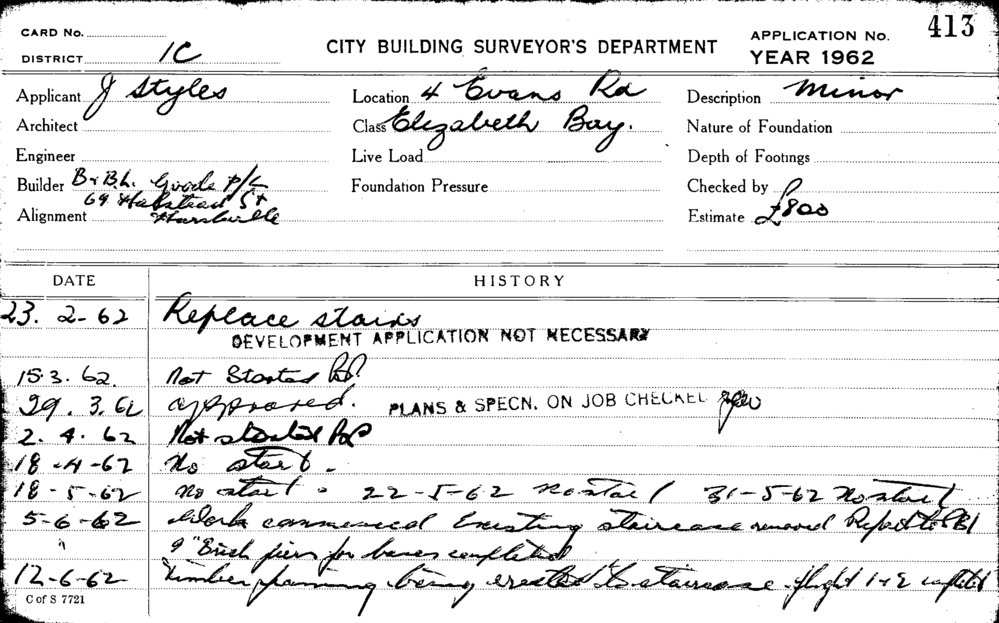 CARD No.
DISTRICT 1C
CITY BUILDING SURVEYOR'S DEPARTMENT
APPLICATION No. 413
YEAR 1962
Applicant J Styles
Location 4 Evans Rd
Description Minor
Architect
Class Elizabeth Bay.
Nature of Foundation
Engineer
Live Load
Depth of Footings
Builder B & B.L. Goode P/L
69 Halstead St
Foundation Pressure
Checked by
Alignment
Estimate £800
DATE HISTORY
23. 2-62 Replace stairs
DEVELOPMENT APPLICATION NOT NECESSARY
15 3. 62. Not Started
29. 3. 62 approved. PLANS & SPECN. ON JOB CHECKED
2. 4. 62 Not started
18-4-62 No start.
18-5-62 no start. 22-5-62 no start 31-5-62 No start
5-6-62 Work commenced Existing staircase removed
" 9" Brick piers for bases completed
12-6-62 Timber framing being erected to staircase flight 1 & 2 completed
C of S 7721